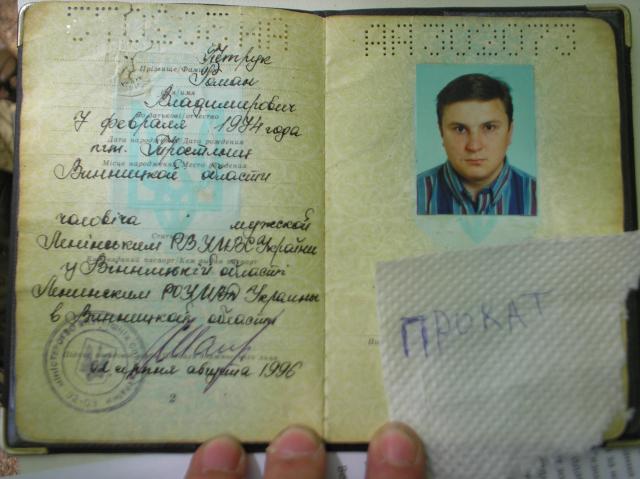 Петрук
Прізвище/Фамилия
Роман
Ім'я/Имя
Владимирович
По батькові/отчество
7 февраля 1974 года
Дата народження/Дата рождения
пгт. Тростянец
Місце народження/Место рождения
Винницкой области
чоловіча мужской
Стать
Ленінським РВ УМВС України
у Вінницькій області
Ленинским РО УМВД Украины
в Винницкой области
02 серпня августа 1996
2
ПРОКАТ